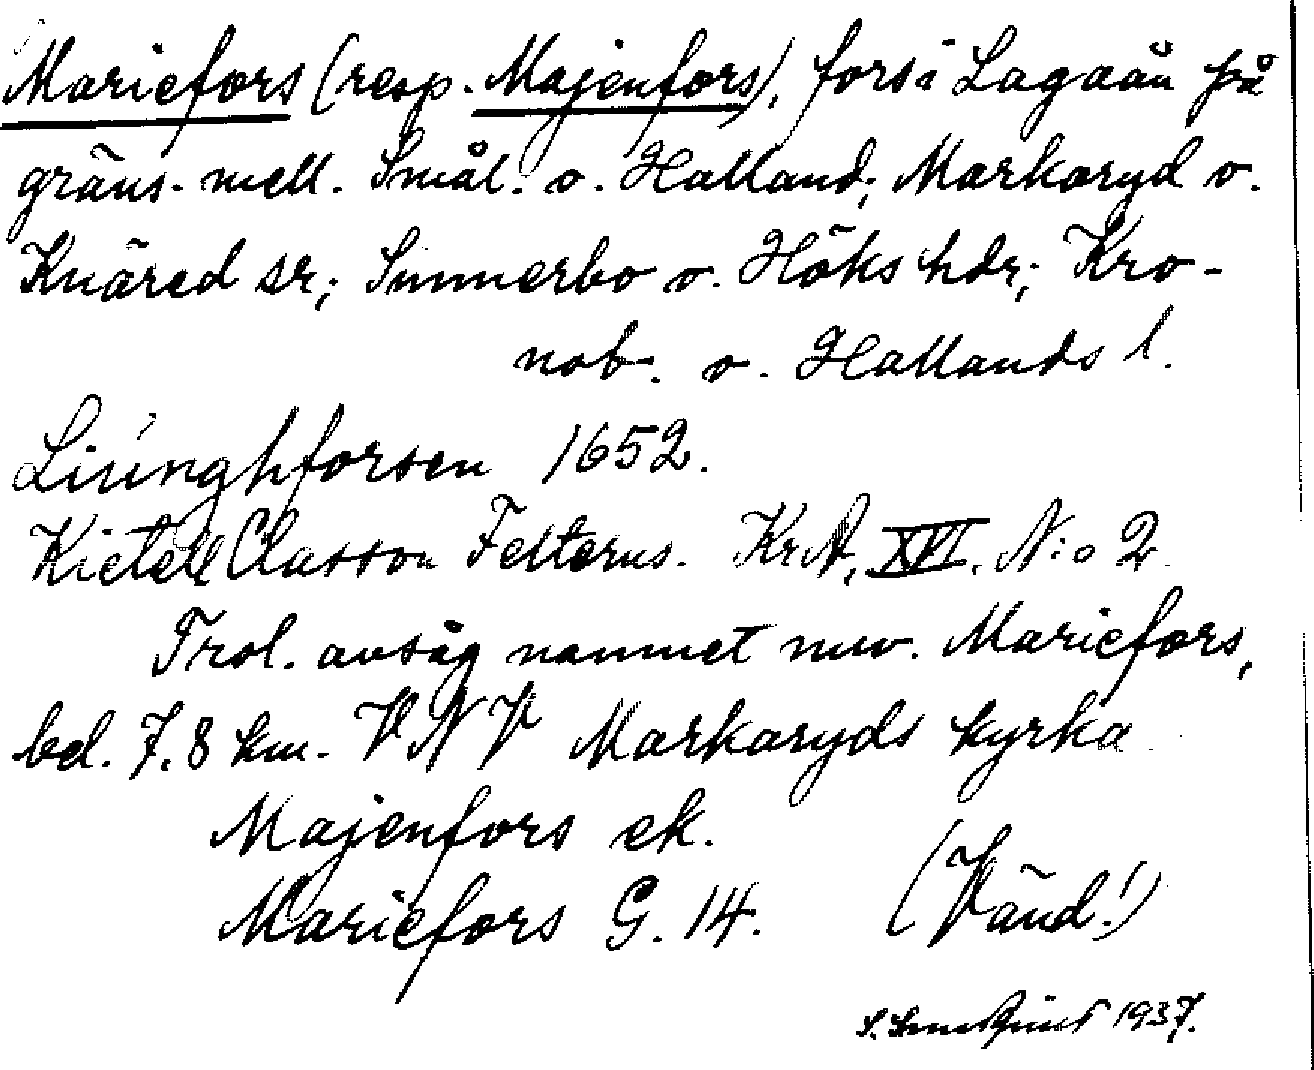 Mariefors (resp. Majenfors), fors i Lagaån på
gräns. mell. Smål. o. Halland; Markaryd o.
Knäred sr; Sunnerbo o. Höks hdr; Kro-
nob. o. Hallands l.
Lisinghforsen 1652.
Kietell Classon Felterus. KrA, XVI. N:o 2.
Trol. avsåg namnet nuv. Mariefors,
bel. 7.8 km. VNV Markaryds kyrka
Majenfors ek.
Mariefors G. 14. (Vänd!)
1937.